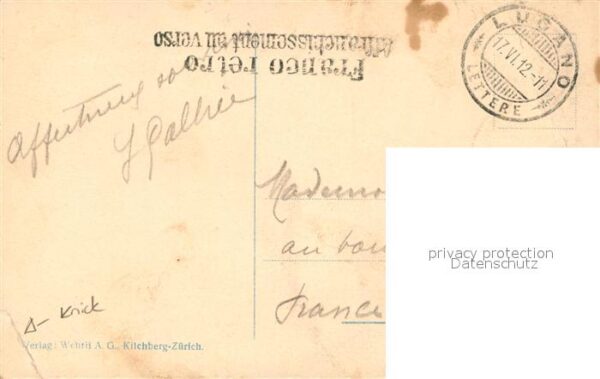 Franco retro
affranchissement au verso
LUGANO
17.VI.12.-11
LETTERE
Mademo
au
France
privacy protection
Datenschutz
Knick
Verlag: Wehrli A. G., Kilchberg-Zürich.